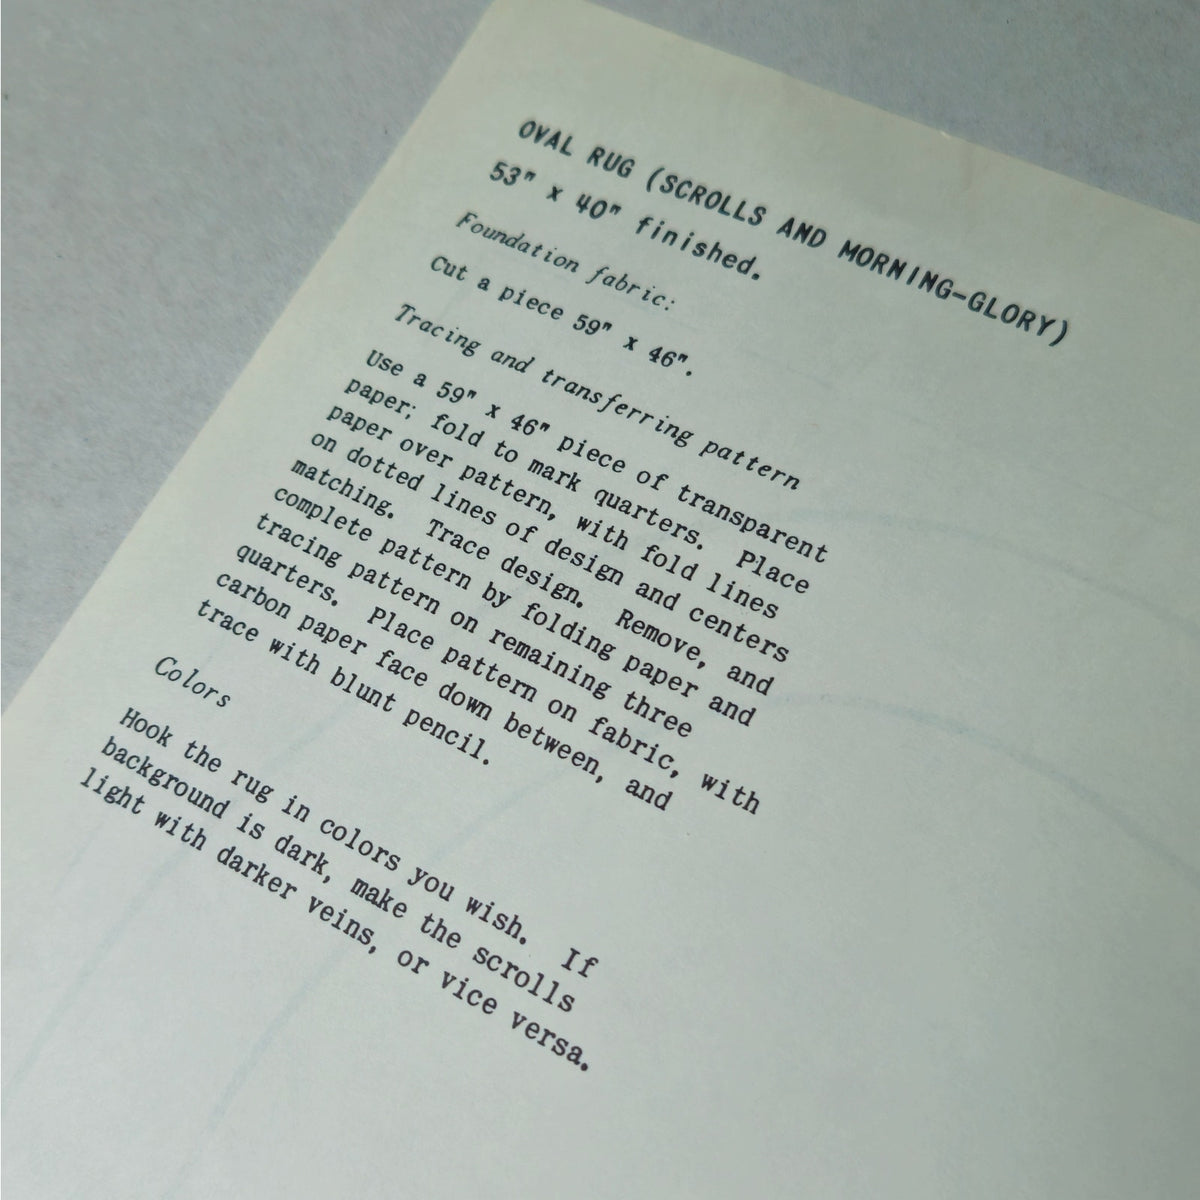 OVAL RUG (SCROLLS AND MORNING-GLORY)
53" x 40" finished.
Foundation fabric:
Cut a piece 59" x 46".
Tracing and transferring pattern
Use a 59" x 46" piece of transparent
paper; fold to mark quarters. Place
paper over pattern, with fold lines
on dotted lines of design and centers
matching. Trace design. Remove, and
complete pattern by folding paper and
tracing pattern on remaining three
quarters. Place pattern on fabric, with
carbon paper face down between, and
trace with blunt pencil.
Colors
Hook the rug in colors you wish. If
background is dark, make the scrolls
light with darker veins, or vice versa.